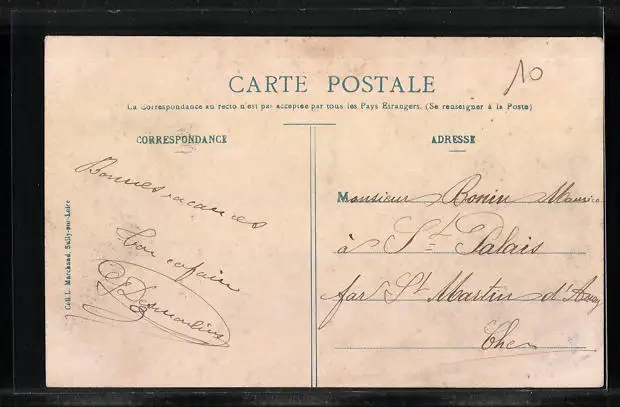 10
CARTE POSTALE
La Correspondance au recto n'est pas acceptée par tous les Pays Etrangers. (Se renseigner à la Poste)
CORRESPONDANCE
Bonnes vacances
Ton copain
Desmoulins
Coll. L. Marchand, Sully-sur-Loire
ADRESSE
Monsieur Bonin Maurice
à St Palais
par St Martin d'Auxy
Cher